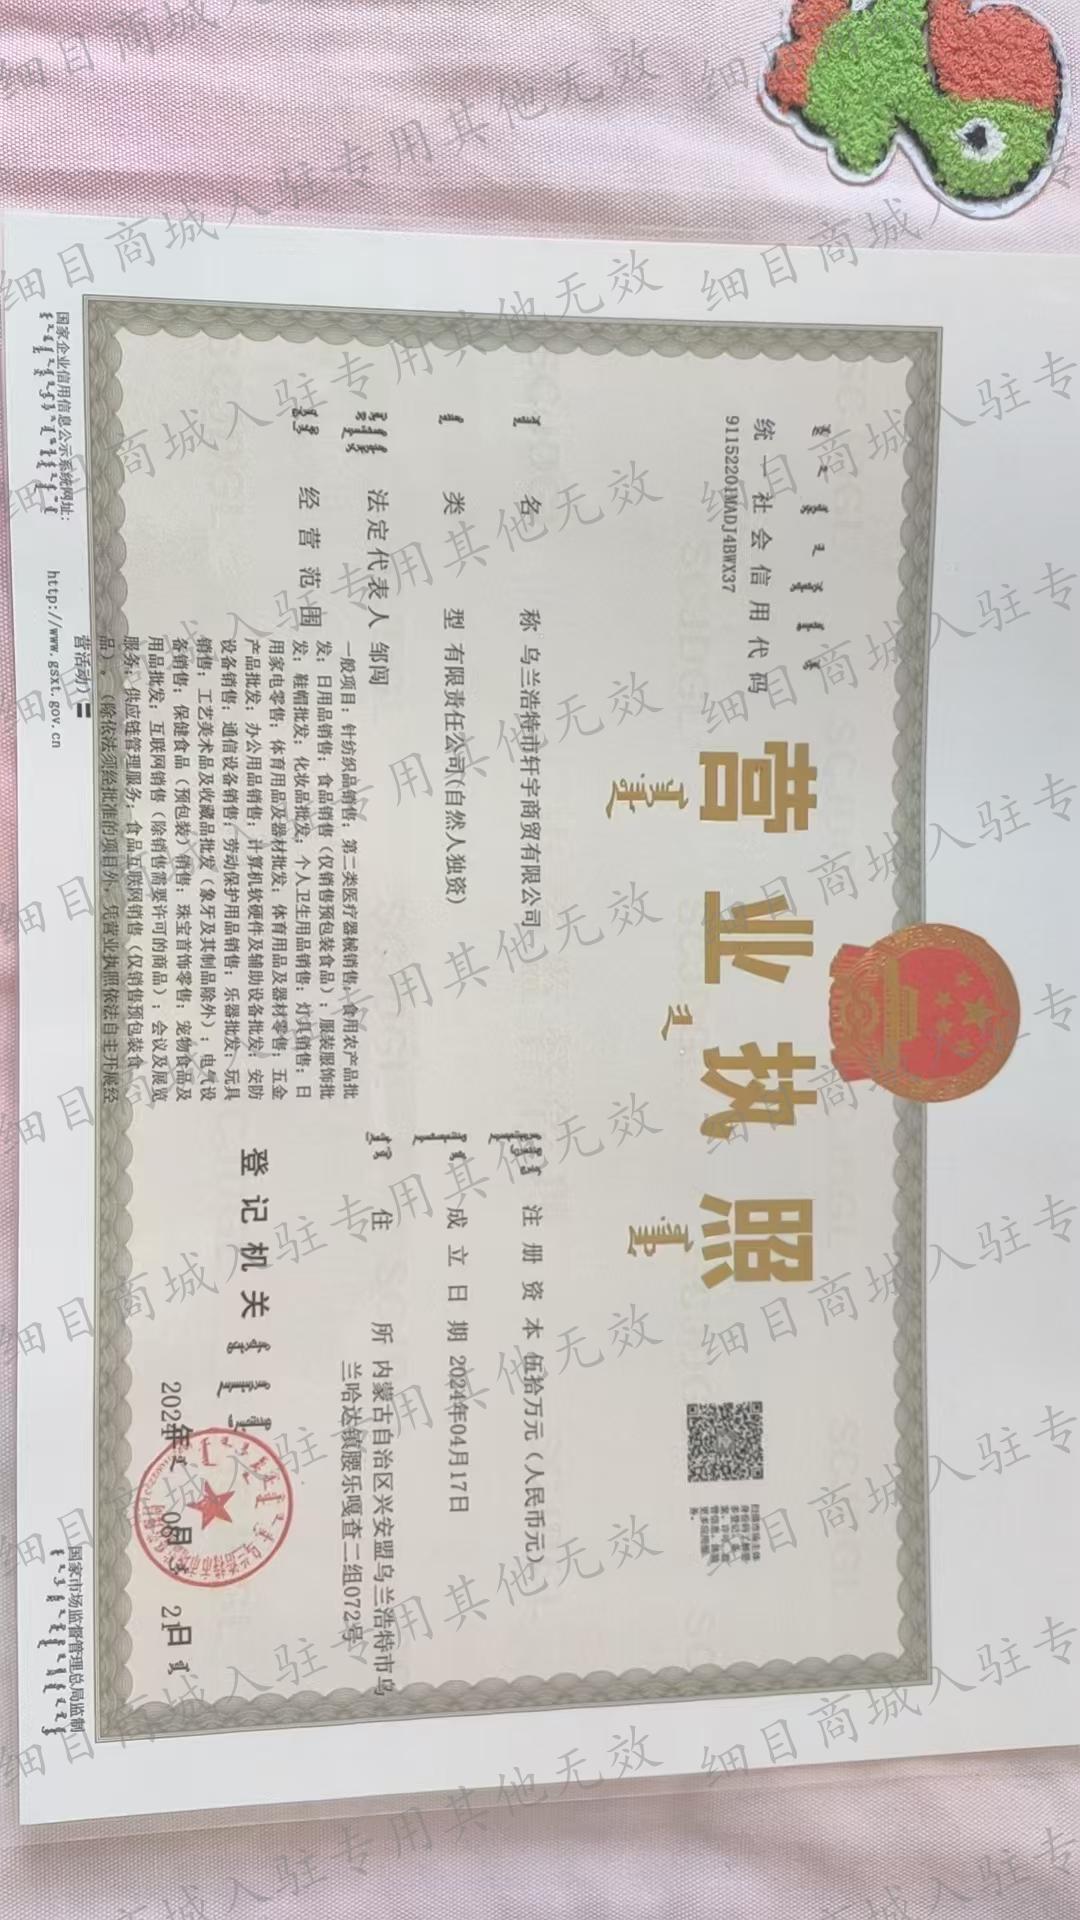 营业执照
统一社会信用代码
91152201MADJ4BWX37
扫描市场主体
身份码了解更
多登记、备
案、许可、监
管信息，体验
更多应用服
务。
名称 乌兰浩特市轩宇商贸有限公司
类型 有限责任公司(自然人独资)
法定代表人 邹闯
经营范围 一般项目：针纺织品销售；第二类医疗器械销售；食用农产品批
发；日用品销售；食品销售（仅销售预包装食品）；服装服饰批
发；鞋帽批发；化妆品批发；个人卫生用品销售；灯具销售；日
用家电零售；体育用品及器材批发；体育用品及器材零售；五金
产品批发；办公用品销售；计算机软硬件及辅助设备批发；安防
设备销售；通信设备销售；劳动保护用品销售；乐器批发；玩具
销售；工艺美术品及收藏品批发（象牙及其制品除外）；电气设
备销售；保健食品（预包装）销售；珠宝首饰零售；宠物食品及
用品批发；互联网销售（除销售需要许可的商品）；会议及展览
服务；供应链管理服务；食品互联网销售（仅销售预包装食
品）。（除依法须经批准的项目外，凭营业执照依法自主开展经
营活动）
注册资本 伍拾万元（人民币元）
成立日期 2024年04月17日
住所 内蒙古自治区兴安盟乌兰浩特市乌
兰哈达镇腰乐嘎查二组072号
登记机关
2024年 08月 21日
国家企业信用信息公示系统网址：
http://www.gsxt.gov.cn
国家市场监督管理总局监制
细目商城入驻专用其他无效